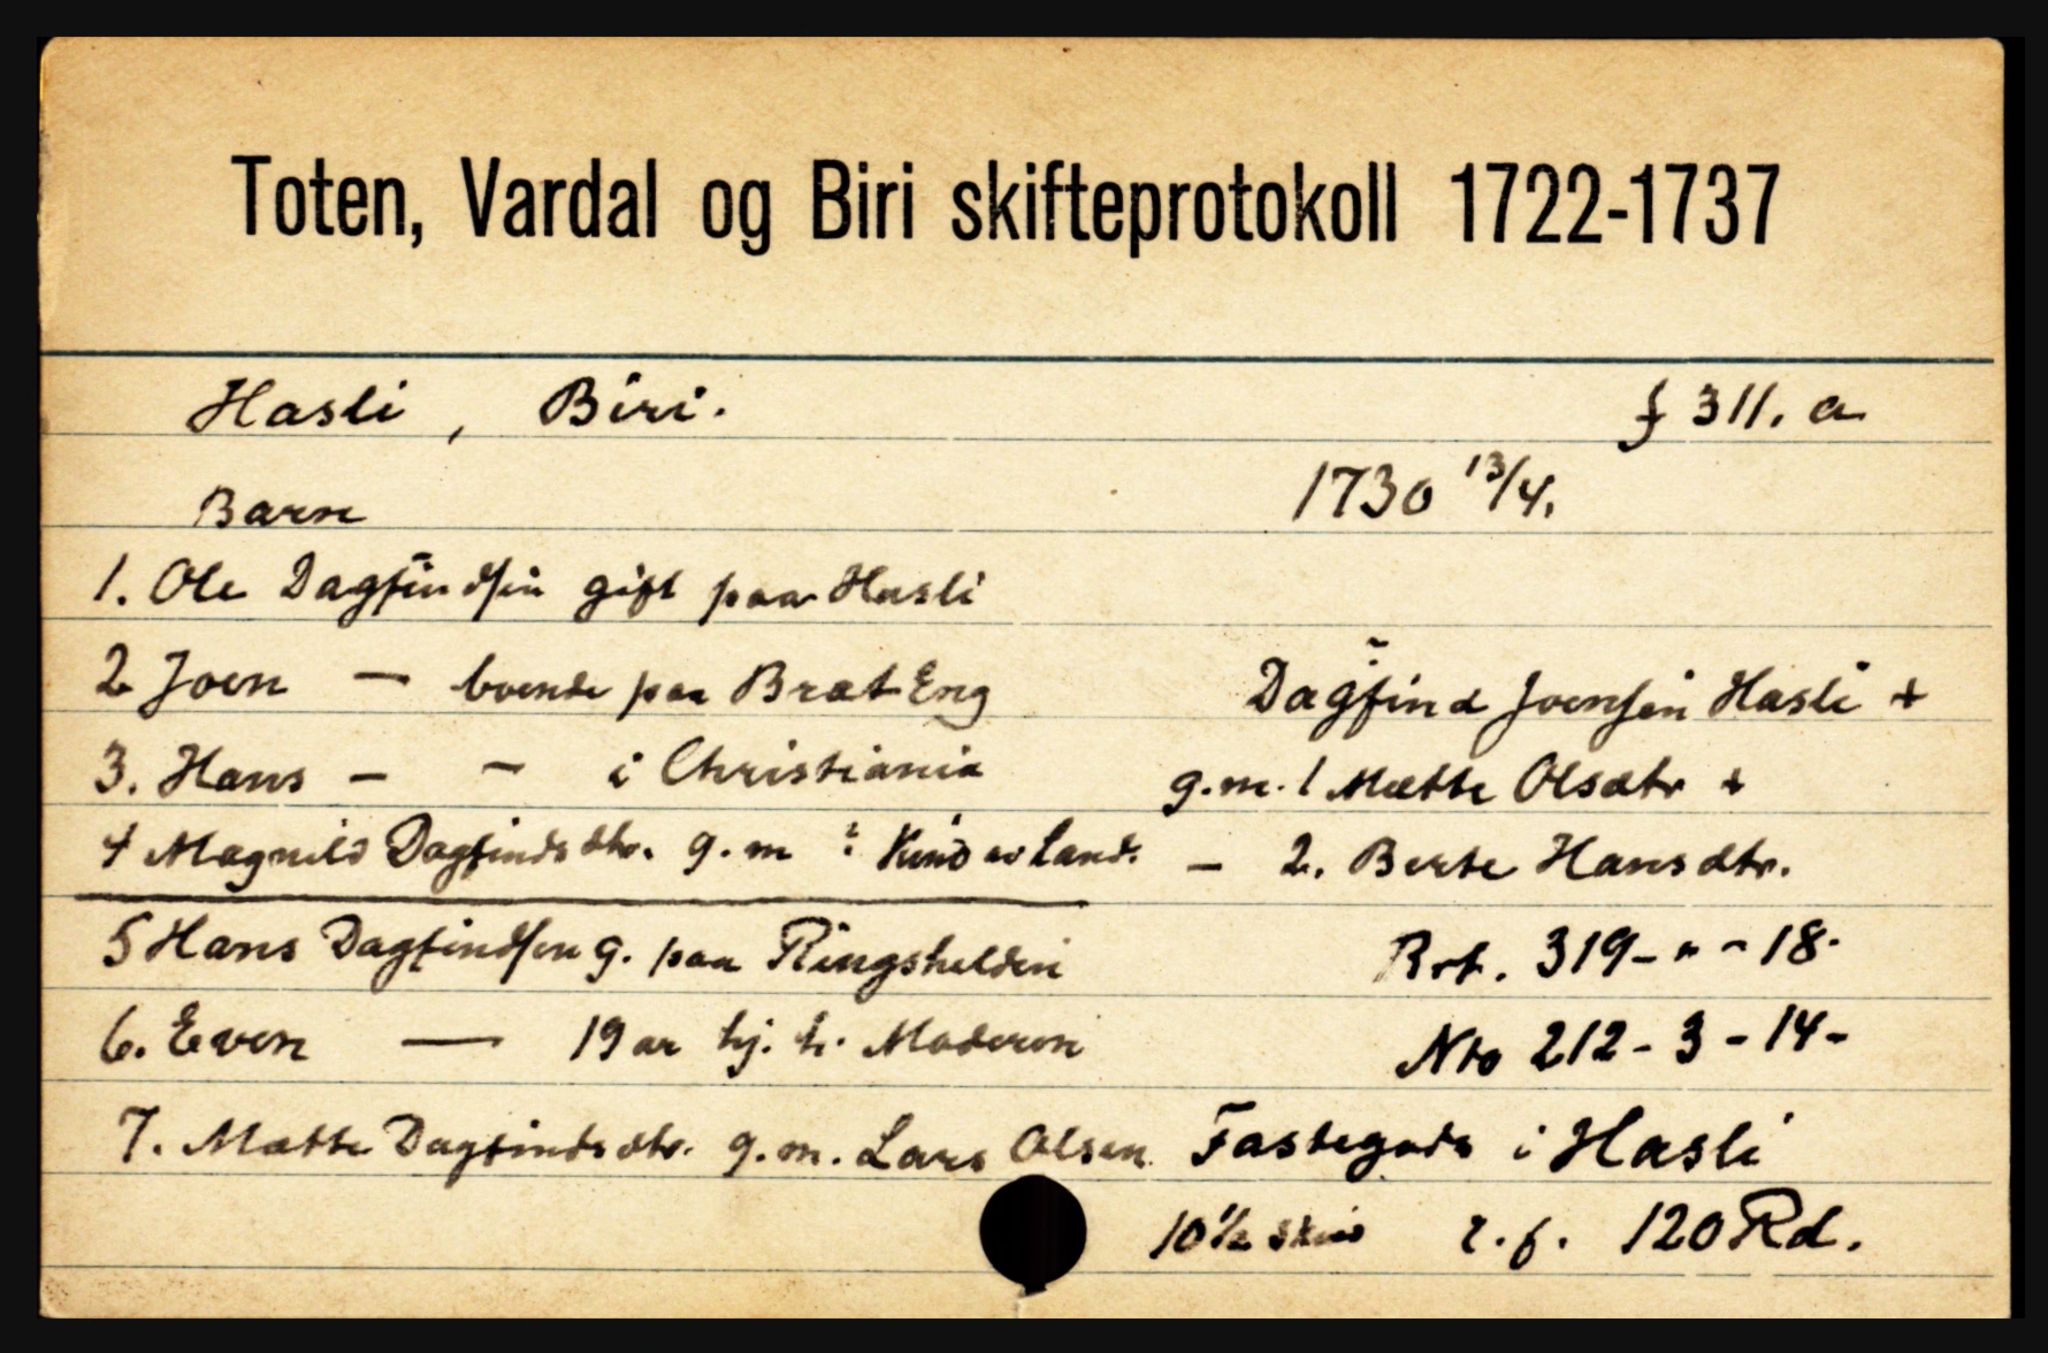 Toten, Vardal og Biri skifteprotokoll 1722-1737
Hasli, Biri. f 311. a
Barn 1730 13/4.
1. Ole Dagfindsen gift paa Hasli
2 Joen — boende paa Brat Eng
3. Hans — — i Christiania
4 Magnild Dagfindsdtr. g. m i Land.
5 Hans Dagfindsen g. paa
6. Even — 19 ar hj. h. Moderen
7. Mætte Dagfindsdtr. g. m. Lars Olsen
Dagfind Joensen Hasli +
g. m. 1 Mætte Olsdtr +
— 2. Berte Hansdtr.
Brt. 319 - " - 18.
Nto 212 - 3 - 14 -
Fastegods i Hasli
10 1/2 skind r. f. 120 Rd.